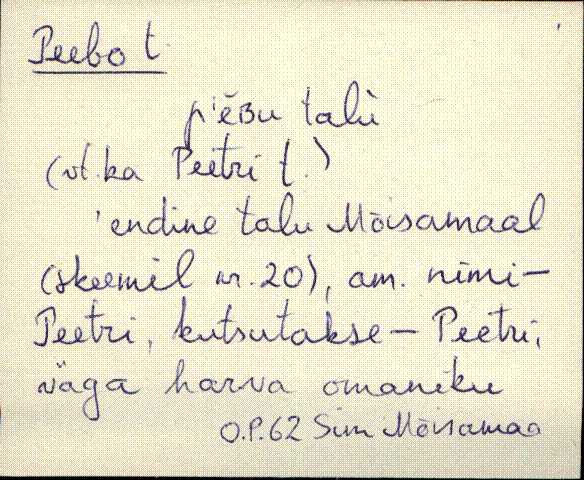 Peebo t.
p'ēʙu talù
(vt. ka Peetri t.)
'endine talu Mõisamaal
(skeemil nr. 20), am. nimi-
Peetri, kutsutakse - Peetri,
väga harva omaniku
O.P.62 Sim Mõisamaa